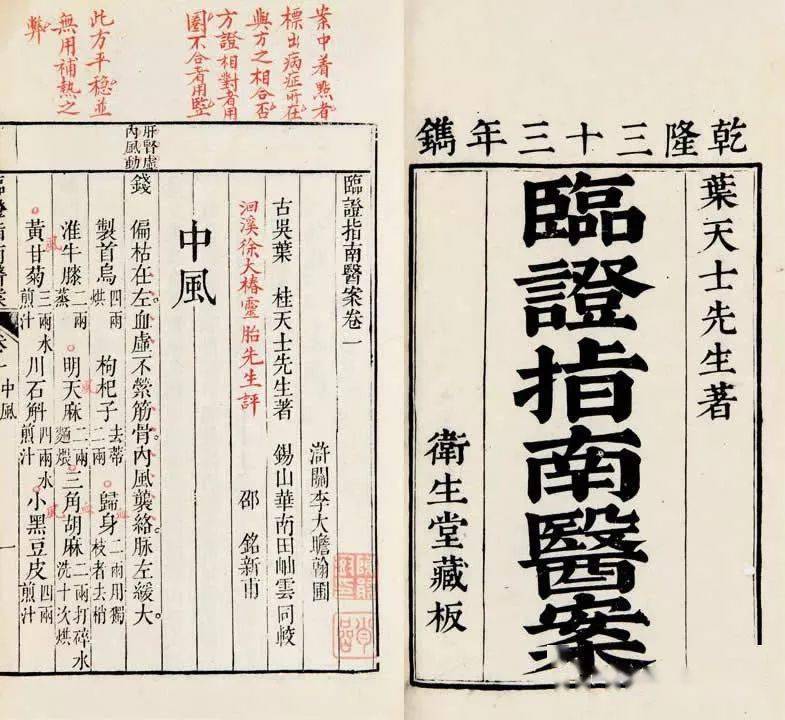 乾隆三十三年鐫
葉天士先生著
臨證指南醫案
衛生堂藏板
案中着點者
標出病症所在
與方之相合否
方證相對者用
圈不合者用豎
此方平穩並
無用補熱之
弊
肝腎虛
內風動
臨證指南醫案卷一
滸關李大瞻翰圃
古吳葉 桂天士先生著 錫山華南田岫雲同較
洄溪徐大椿靈胎先生評 邵 銘新甫
中風
錢 偏枯在左。血虛不縈筋骨。內風襲絡。脉左緩大。
製首烏四兩烘 枸杞子去蒂二兩 歸身二兩用獨枝者去梢
淮牛膝二兩蒸 明天麻二兩麵煨 三角胡麻二兩打碎水洗十次烘
黃甘菊三兩水煎汁 川石斛四兩水煎汁 小黑豆皮四兩煎汁
臨證指南醫案 卷一 中風 一